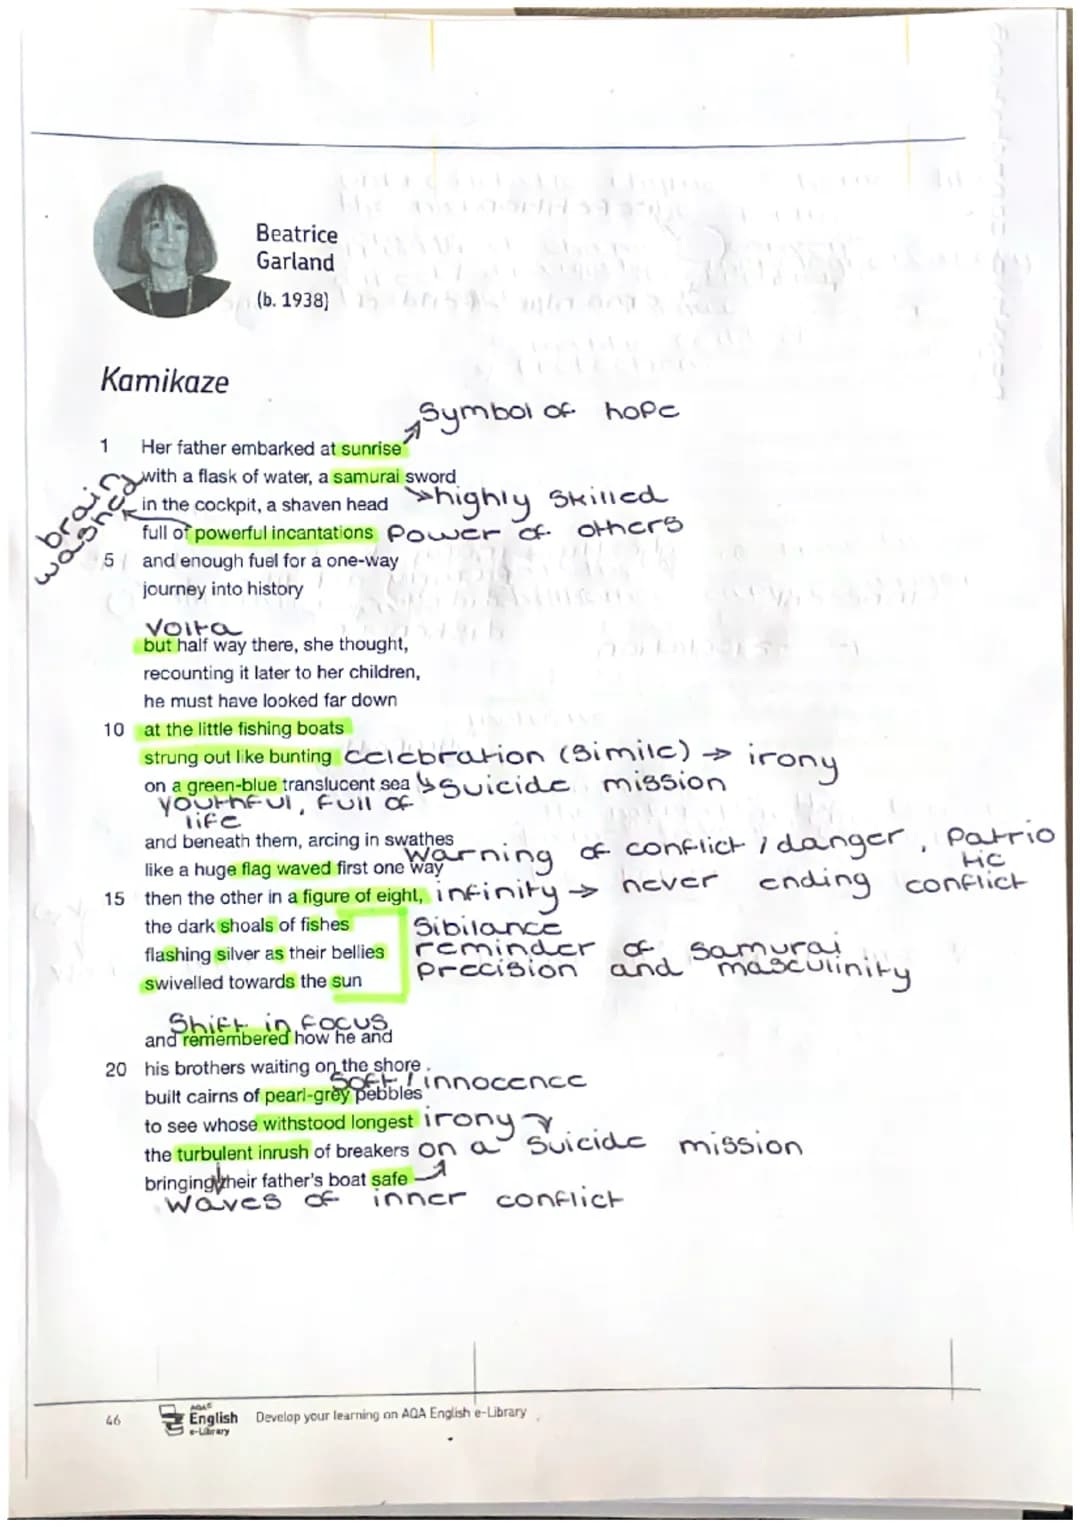 Beatrice
Garland
(b. 1938)
Kamikaze
Symbol of hope
1 Her father embarked at sunrise
with a flask of water, a samurai sword
brain washed
in the cockpit, a shaven head
highly skilled
full of powerful incantations Power of others
5 and enough fuel for a one-way
journey into history
Volta
but half way there, she thought,
recounting it later to her children,
he must have looked far down
10 at the little fishing boats
strung out like bunting celebration (Simile) → irony
on a green-blue translucent sea ↳ Suicide mission
youthful, full of
life
and beneath them, arcing in swathes
Warning of conflict / danger, Patrio
tic
like a huge flag waved first one way
15 then the other in a figure of eight, infinity → never ending conflict
the dark shoals of fishes Sibilance
flashing silver as their bellies reminder of samurai
precision and masculinity
swivelled towards the sun
Shift in focus
and remembered how he and
20 his brothers waiting on the shore
Soft / innocence
built cairns of pearl-grey pebbles
to see whose withstood longest irony
the turbulent inrush of breakers on a Suicide mission
bringing their father's boat safe
Waves of inner conflict
46 AQA English e-Library Develop your learning on AQA English e-Library